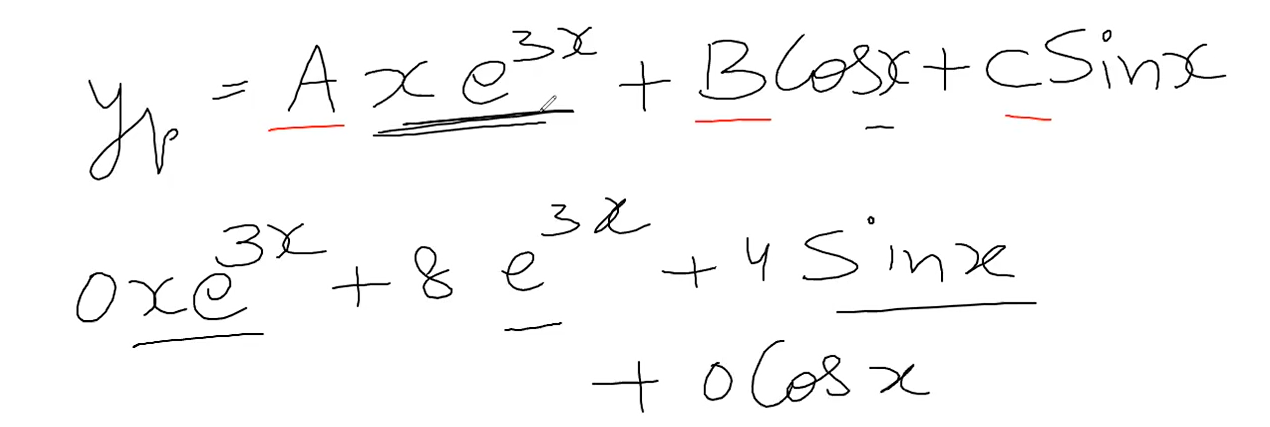 yₚ = A x e³ˣ + B Cosx + C Sinx
0xe³ˣ + 8 e³ˣ + 4 Sinx
+ 0 Cosx